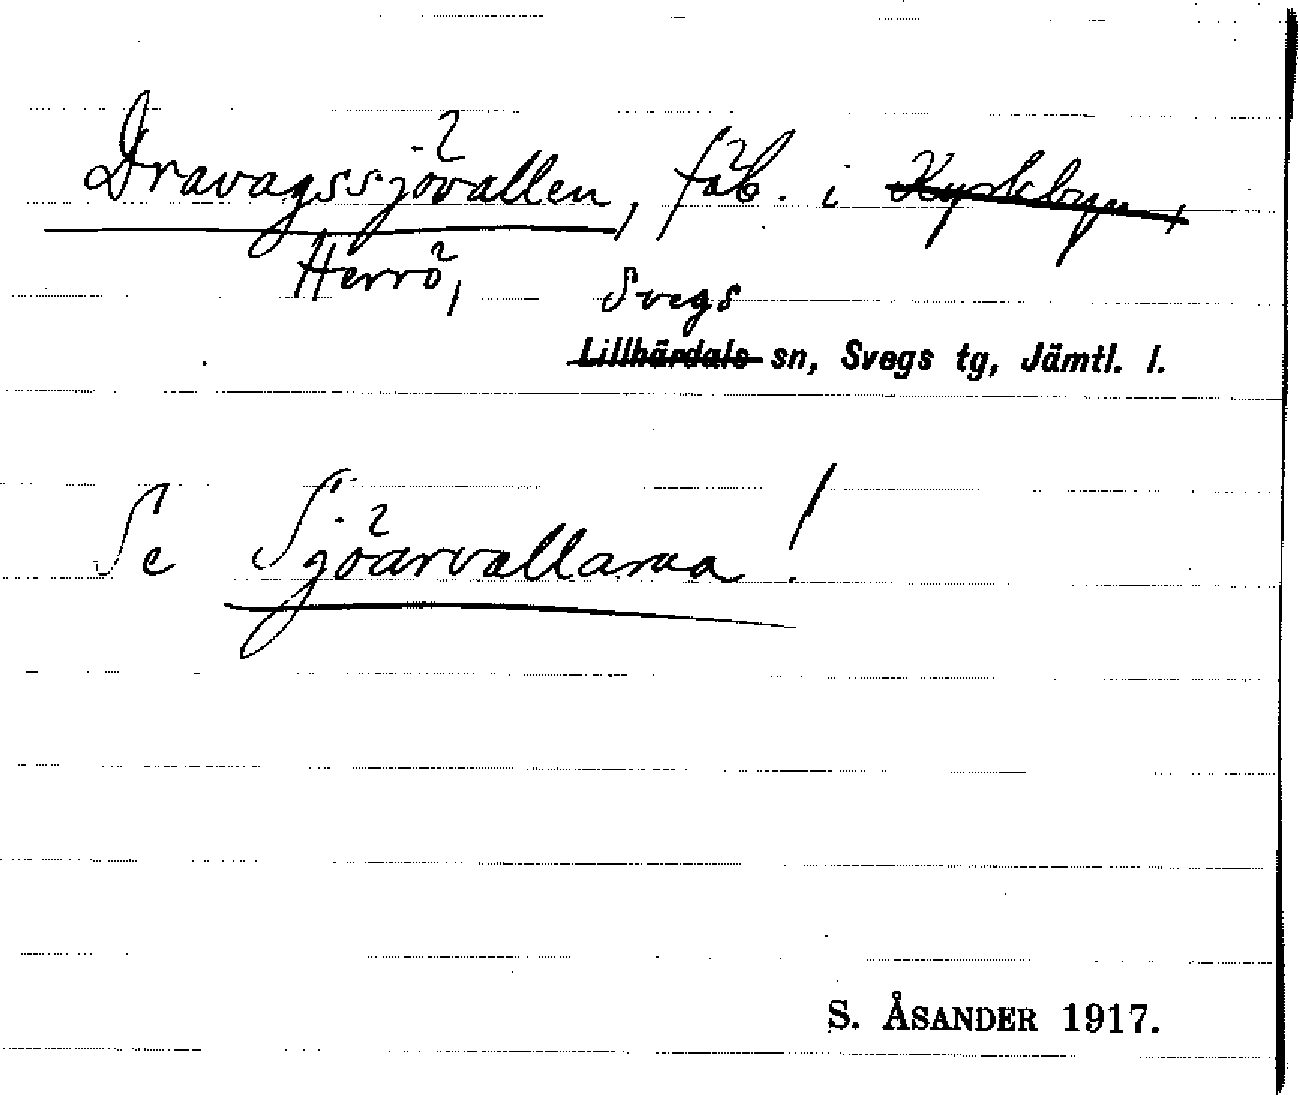 Dravagssjövallen, fäb. i Kyrkbyn,
Herrö,
Svegs
Lillhärdals sn, Svegs tg, Jämtl. l.
Se Sjöarvallarna!
S. ÅSANDER 1917.